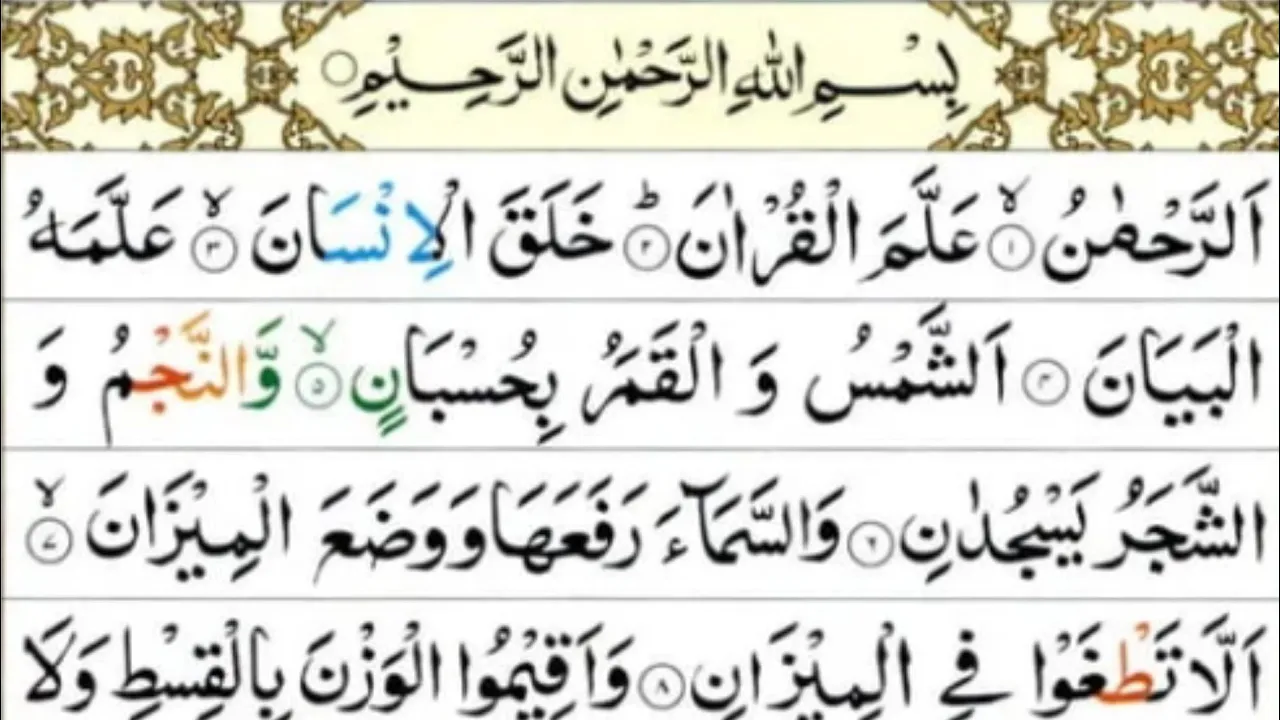 بِسْمِ اللهِ الرَّحْمٰنِ الرَّحِيْمِ ○
اَلرَّحْمٰنُ ۙ﴿۱﴾ عَلَّمَ الْقُرْاٰنَ ؕ﴿۲﴾ خَلَقَ الْاِنْسَانَ ۙ﴿۳﴾ عَلَّمَهُ
الْبَيَانَ ﴿۴﴾ اَلشَّمْسُ وَ الْقَمَرُ بِحُسْبَانٍ ۙ﴿۵﴾ وَّالنَّجْمُ وَ
الشَّجَرُ يَسْجُدٰنِ ﴿۶﴾ وَالسَّمَآءَ رَفَعَهَا وَوَضَعَ الْمِيْزَانَ ۙ﴿۷﴾
اَلَّا تَطْغَوْا فِي الْمِيْزَانِ ﴿۸﴾ وَاَقِيْمُوا الْوَزْنَ بِالْقِسْطِ وَلَا